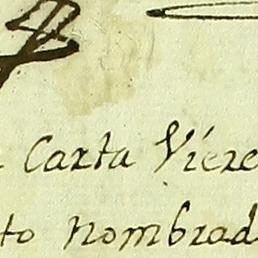 Carta Viere
to nombrad